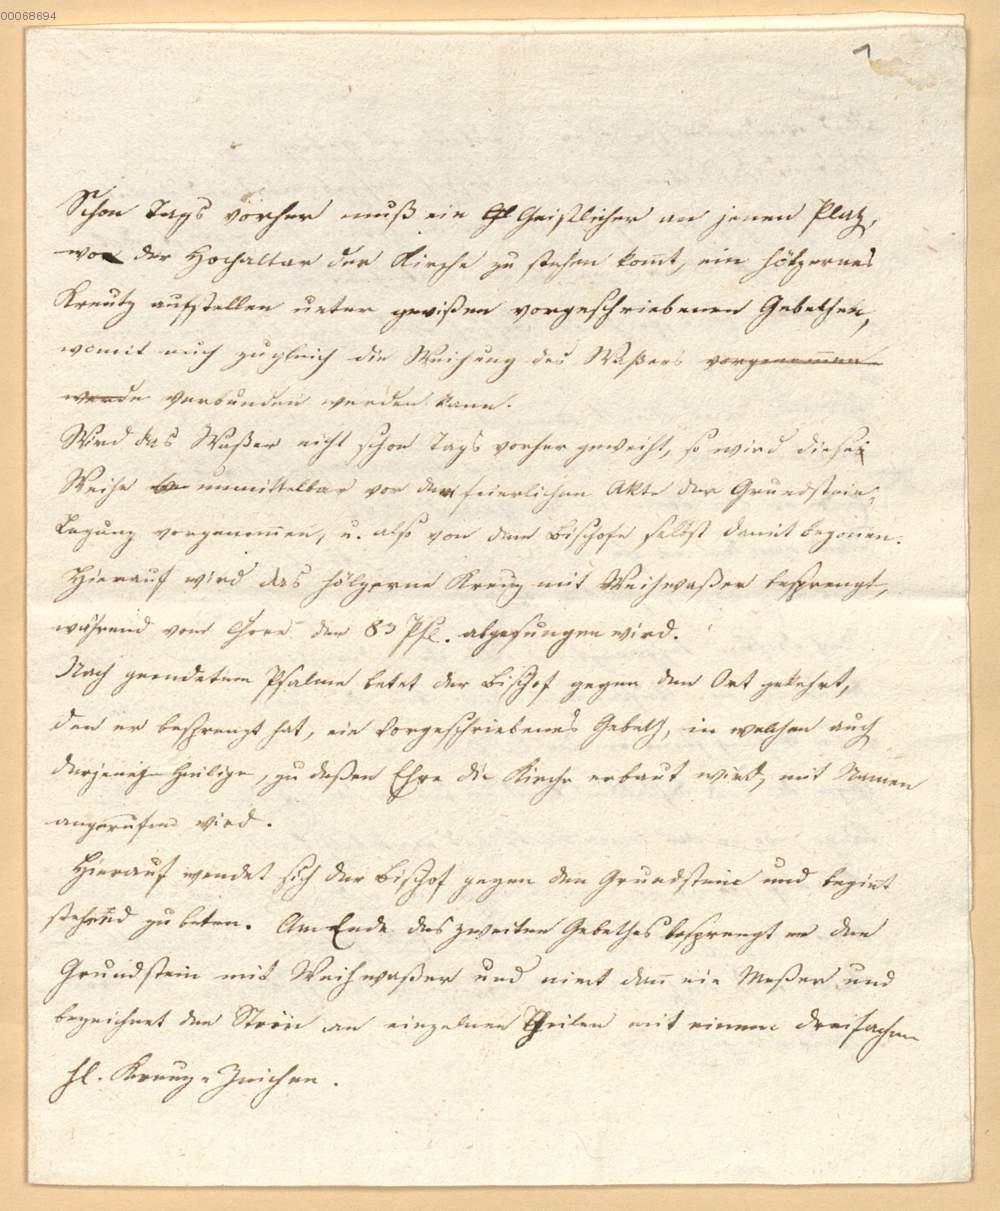 00068694
1
Schon Tags vorher muß ein Geistlicher an jenen Platz,
wo der Hochaltar der Kirche zu stehen kom̅t, ein hölzernes
Kreutz aufstellen unter gewißen vorgeschriebenen Gebethen,
womit auch zugleich die Weihung des Waßers vorgenommen
werde verbunden werden kann.
Wird das Waßer nicht schon Tags vorher geweiht, so wird diese
Weihe unmittelbar vor dem feierlichen Akte der Grundstein-
Legung vorgenom̅en, u. also von dem Bischofe selbst damit begon̅en.
Hierauf wird das hölzerne Kreuz mit Weihwaßer besprengt,
während vom Chore der 83 Psl. abgesungen wird.
Nach geendetem Psalme betet der Bischof gegen den Ort gekehrt,
den er besprengt hat, ein vorgeschriebenes Gebeth, in welchem auch
derjenige Heilige, zu deßen Ehre die Kirche erbaut wird, mit Namen
angerufen wird.
Hierauf wendet sich der Bischof gegen den Grundstein und begin̅t
stehend zu beten. Am Ende des zweiten Gebethes besprengt er den
Grundstein mit Weihwaßer und nim̅t dan̅ ein Meßer und
bezeichnet den Stein an einzelnen Theilen mit einem dreifachen
hl. Kreuz-Zeichen.